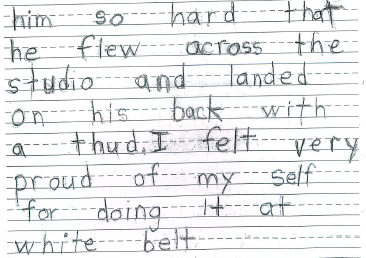 him so hard that
he flew across the
studio and landed
on his back with
a thud. I felt very
proud of my self
for doing it at
white belt.